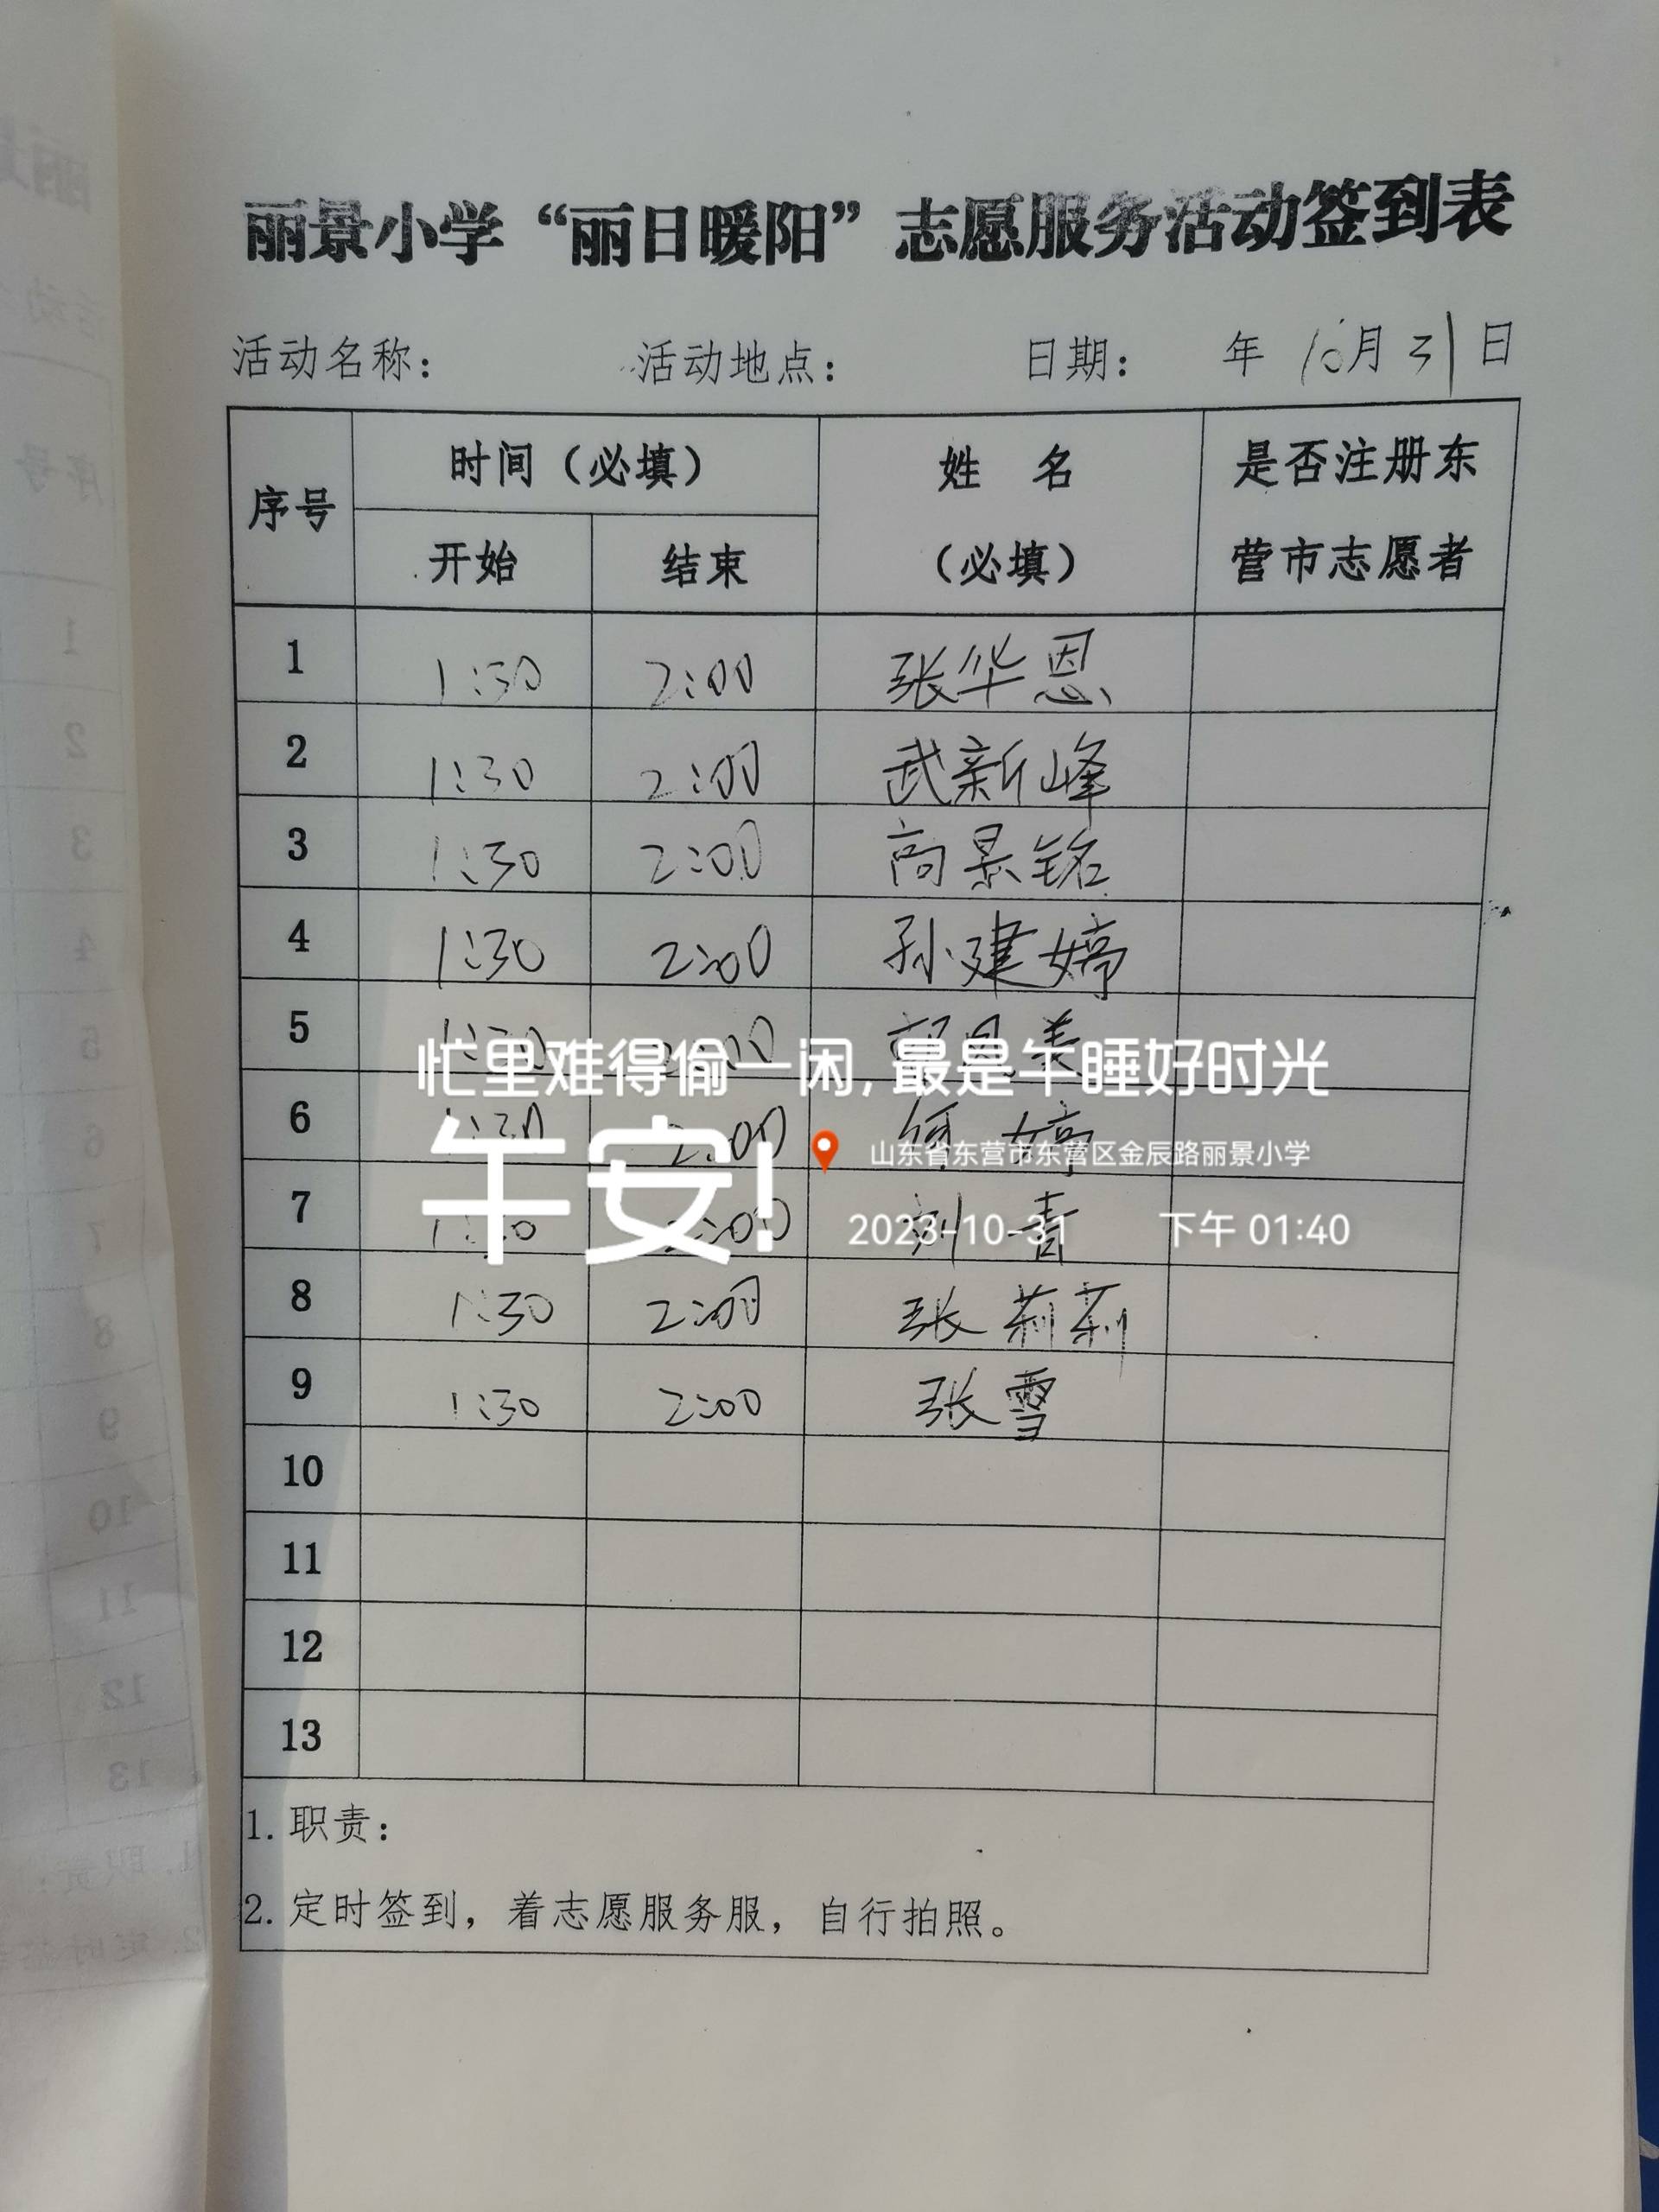 丽景小学“丽日暖阳”志愿服务活动签到表
活动名称: 活动地点: 日期: 年 10月31日
序号 时间（必填） 姓 名（必填） 是否注册东营市志愿者
开始 结束
1 1:30 2:00 张华恩
2 1:30 2:00 武新峰
3 1:30 2:00 高景铭
4 1:30 2:00 孙建婷
5 1:30 2:00 美
忙里难得偷一闲,最是午睡好时光
6 1:30 2:00 何婷
午安!
山东省东营市东营区金辰路丽景小学
7 1:30 2:00 刘青
2023-10-31 下午 01:40
8 1:30 2:00 张莉莉
9 1:30 2:00 张雪
10
11
12
13
1.职责:
2.定时签到，着志愿服务服，自行拍照。